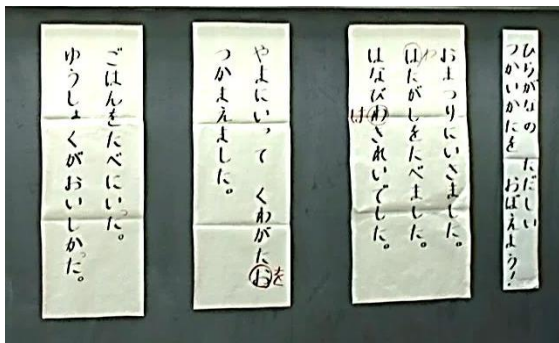 ひらがなの ただしい
つかいかたを おぼえよう!
おまつりにいきました。
わ
はたがしをたべました。
はなびわきれいでした。
は
やまにいって くわがたお
を
つかまえました。
ごはんをたべにいった。
ゆうしょくがおいしかった。